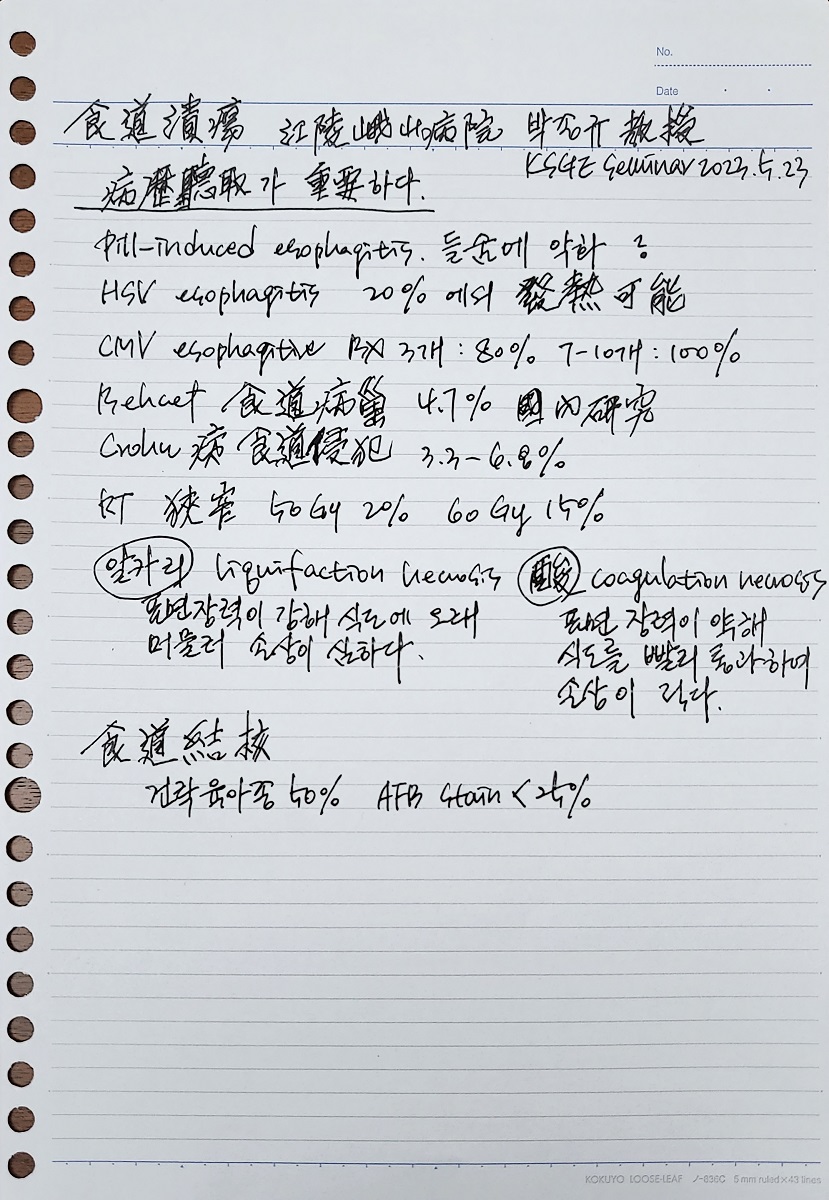 No.
Date
食道潰瘍 江陵峨山病院 박종규 敎授
KSGE Seminar 2023.5.23
病歷聽取가 重要하다.
Pill-induced esophagitis. 들숨에 악화 ?
HSV esophagitis 20% 에서 發熱可能
CMV esophagitis Bx 3개 : 80% 7-10개 : 100%
Behcet 食道病巢 4.7% 國內硏究
Crohn 病 食道侵犯 3.3-6.8%
RT 狹窄 50Gy 2% 60Gy 15%
알카리 liquifaction necrosis 酸 coagulation necrosis
표면장력이 강해 식도에 오래
머물러 손상이 심하다.
표면 장력이 약해
식도를 빨리 통과하여
손상이 적다.
食道結核
건락육아종 50% AFB stain < 25%
KOKUYO LOOSE-LEAF ノ-836C 5 mm ruled×43 lines